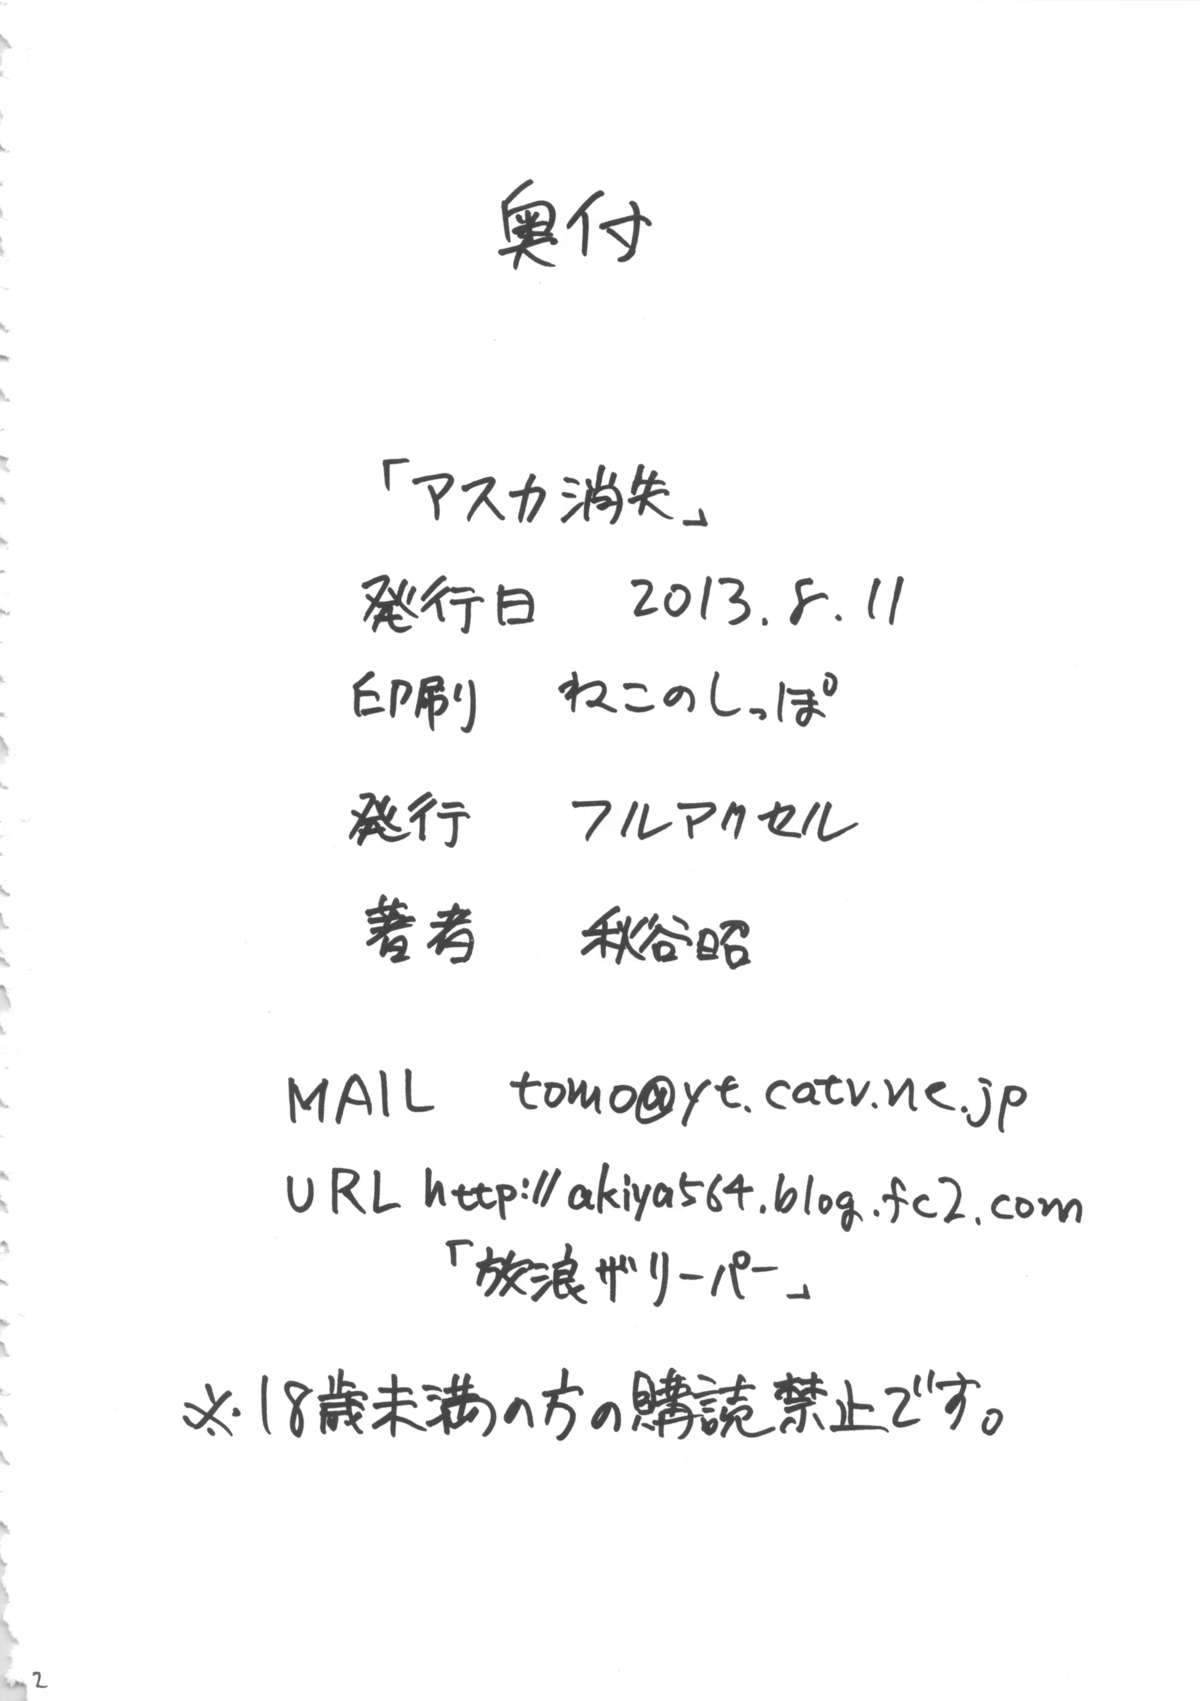 奥付
「アスカ消失」
発行日 2013.8.11
印刷 ねこのしっぽ
発行 フルアクセル
著者 秋谷昭
MAIL tomo@yt.catv.ne.jp
URL http://akiya564.blog.fc2.com
「放浪ザリーパー」
※.18歳未満の方の購読禁止です。
2